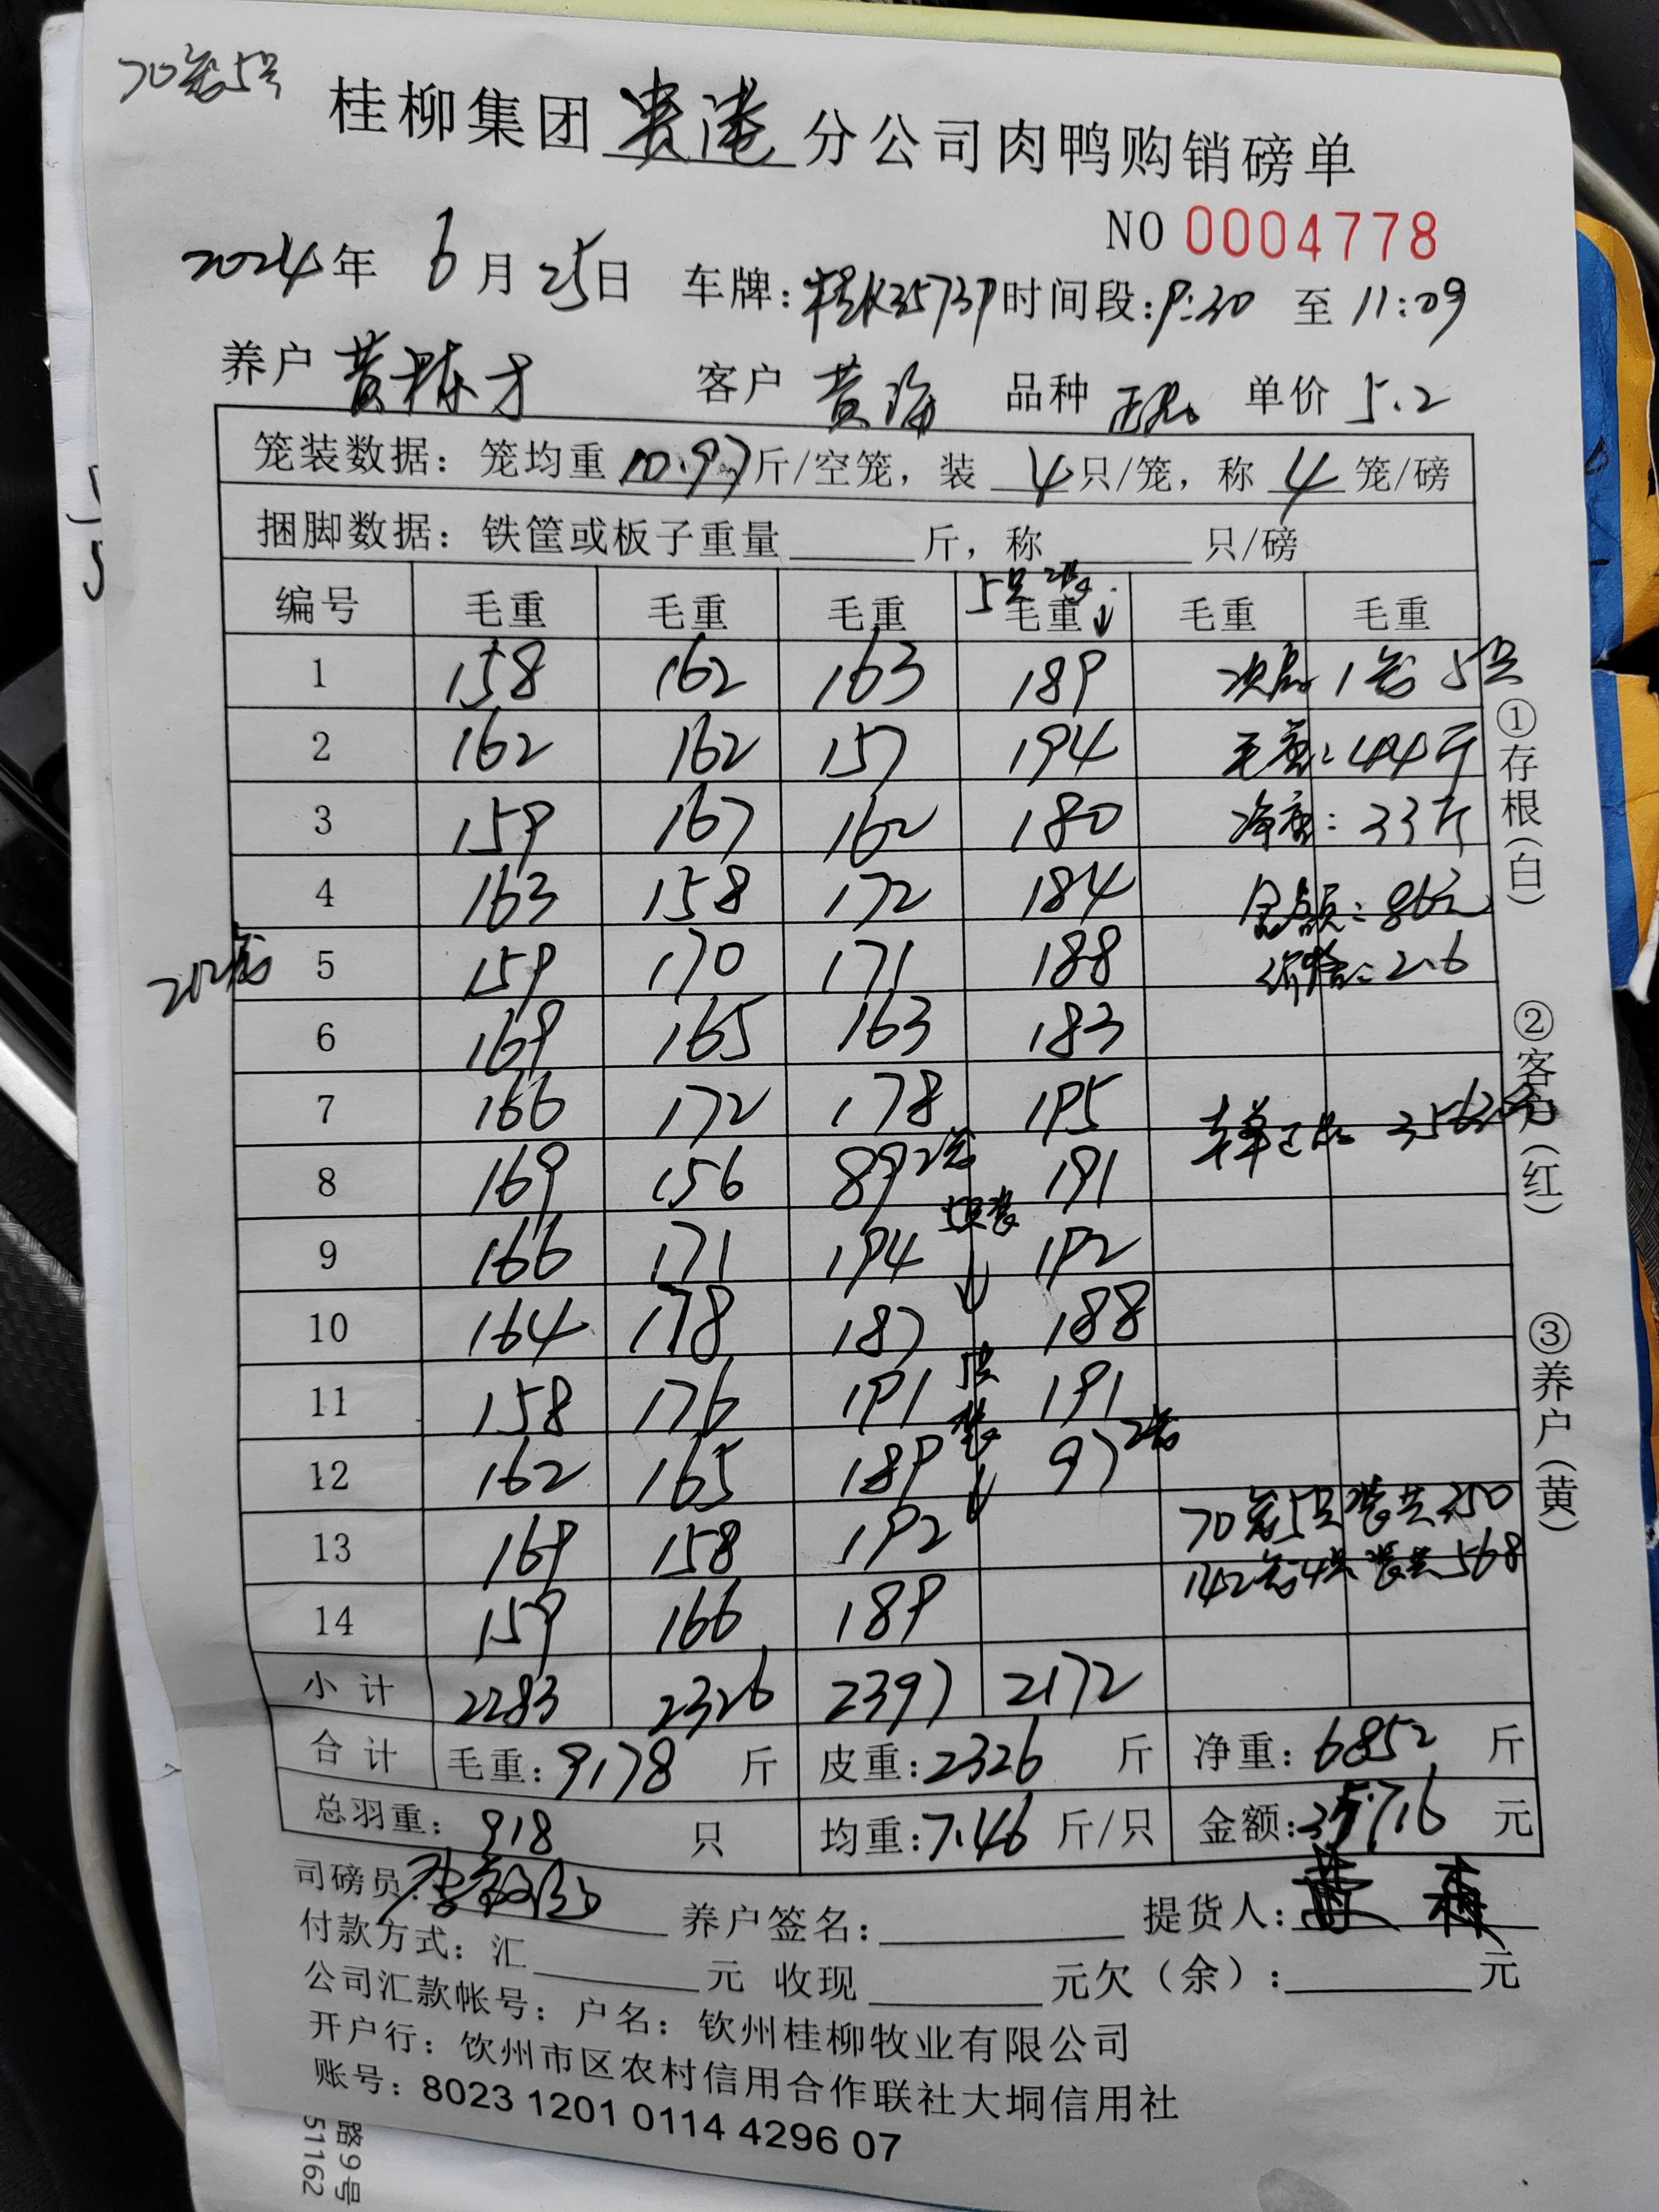 70笼5只
桂柳集团贵港分公司肉鸭购销磅单
NO 0004778
2024年 6月25日 车牌: 时间段:9:30 至 11:09
养户 黄栋才 客户 黄海 品种 单价 5.2
笼装数据：笼均重10.97斤/空笼，装 4只/笼，称 4 笼/磅
捆脚数据：铁筐或板子重量 斤，称 只/磅
5只装↓
编号 毛重 毛重 毛重 毛重 毛重 毛重
1 158 162 163 189 次品 1笼 5只
2 162 162 157 194 毛重：44斤
3 159 167 162 180 净重：33斤
4 163 158 172 184 金额：86元
202笼 5 159 170 171 188 价格：2.6
6 169 165 163 183
7 166 172 178 195
8 169 156 89 2笼 191
9 166 171 194 ↓ 192
10 164 178 187 188
11 158 176 191 5只装↓ 191
12 162 165 189 97 2笼
13 169 158 192 70笼5只装共350
14 159 166 189 142笼4只装共568
小计 2283 2326 2397 2172
合计 毛重：9178 斤 皮重：2326 斤 净重：6852 斤
总羽重：918 只 均重：7.46 斤/只 金额： 元
司磅员： 养户签名： 提货人：
付款方式：汇 元 收现 元欠（余）： 元
公司汇款帐号：户名：钦州桂柳牧业有限公司
开户行：钦州市区农村信用合作联社大垌信用社
账号：8023 1201 0114 4296 07
①存根（白） ②客户（红） ③养户（黄）
路9号
51162